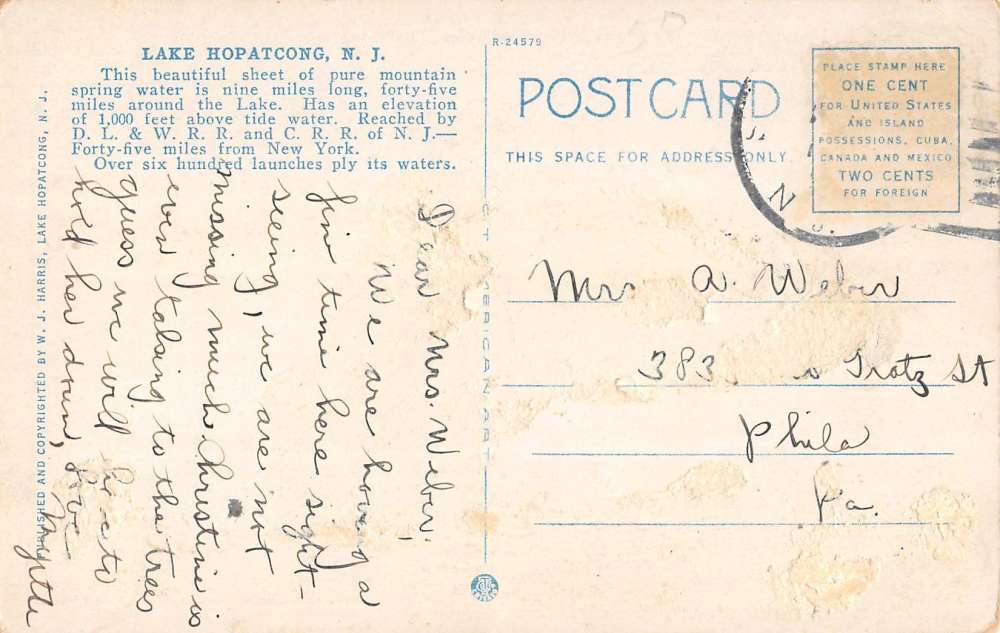 R-24579
LAKE HOPATCONG, N. J.
This beautiful sheet of pure mountain
spring water is nine miles long, forty-five
miles around the Lake. Has an elevation
of 1,000 feet above tide water. Reached by
D. L. & W. R. R. and C. R. R. of N. J.—
Forty-five miles from New York.
Over six hundred launches ply its waters.
POST CARD
THIS SPACE FOR ADDRESS ONLY
PLACE STAMP HERE
ONE CENT
FOR UNITED STATES
AND ISLAND
POSSESSIONS, CUBA,
CANADA AND MEXICO
TWO CENTS
FOR FOREIGN
J.
N. J.
Dear Mrs. Weber,
We are having a
fine time here sight-
seeing, we are not
missing much. Christine is
even talking to the trees
guess we will have to
hold her down, Love
Myrtle
Mrs A. Weber
383 Tratz St
Phila
Pa.
PUBLISHED AND COPYRIGHTED BY W. J. HARRIS, LAKE HOPATCONG, N. J.
AMERICAN ART